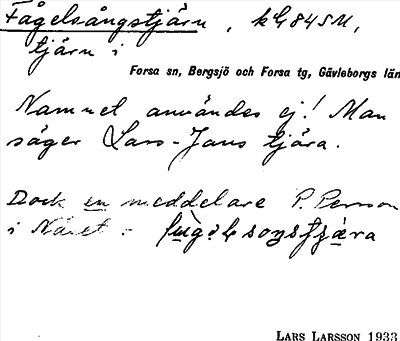 Fågelsångstjärn, kG845M,
tjärn i
Forsa sn, Bergsjö och Forsa tg, Gävleborgs län
Namnet användes ej! Man
säger Lars-Jans tjära.
Dock en meddelare P. Persson
i Näset =
LARS LARSSON 1933